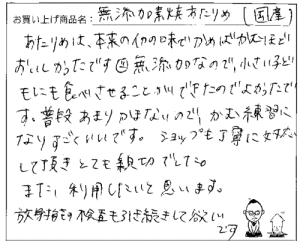 お買い上げ商品名:無添加素焼きあたりめ(国産)
あたりめは、本来のイカの味でかめばかむほど
おいしかったです 無添加なので、小さい子ど
もにも食べさせることができたのでよかったで
す。普段あまりかまないので、かむ練習に
なりすごくいいです。ショップも丁寧に対応
して頂きとても親切でした。
また、利用したいと思います。
放射能の検査も引き続きして欲しい
です